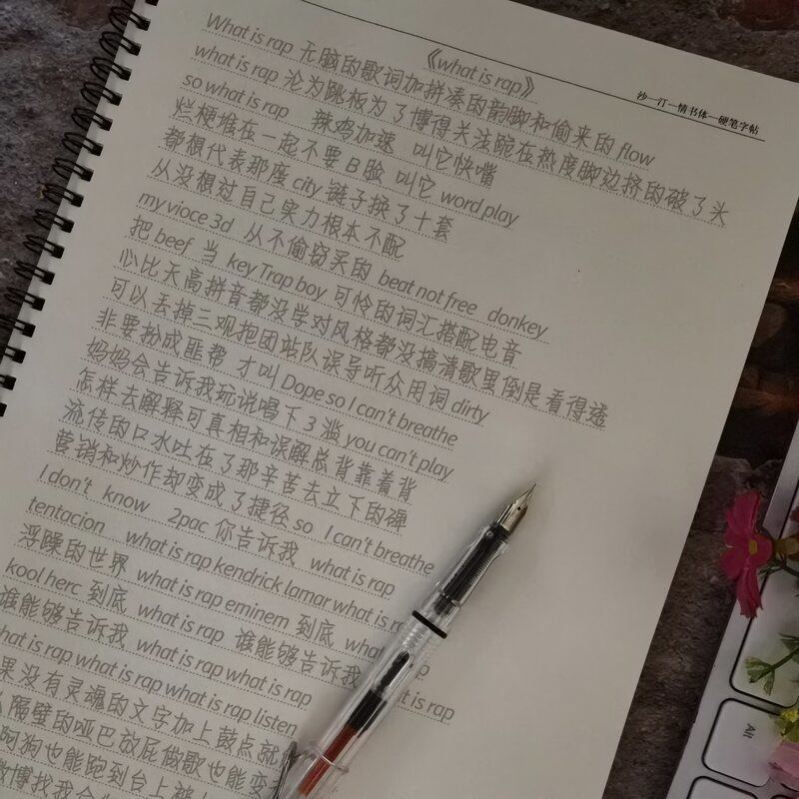 《what is rap》
沙一汀一情书体一硬笔字帖
What is rap 无脑的歌词加拼凑的韵脚和偷来的 flow
what is rap 沦为跳板为了博得关注跪在热度脚边挤的破了头
so what is rap 辣鸡加速 叫它快嘴
烂梗堆在一起不要B脸 叫它 word play
都想代表那座 city 链子换了十套
从没想过自己实力根本不配
my vioce 3d 从不偷窃买的 beat not free donkey
把 beef 当 key Trap boy 可怜的词汇搭配电音
心比天高拼音都没学对风格都没搞清歌里倒是看得透
可以丢掉三观抱团站队误导听众用词 dirty
非要扮成匪帮 才叫 Dope so I can't breathe
妈妈会告诉我玩说唱下3滥 you can't play
怎样去解释可真相和误解总背靠着背
流传的口水吐在了那辛苦去立下的碑
营销和炒作却变成了捷径 so I can't breathe
I don't know 2pac 你告诉我 what is rap
tentacion what is rap kendrick lamar what is r
浮躁的世界 what is rap eminem 到底 wha p
kool herc 到底 what is rap 谁能够告诉我 t is rap
谁能够告诉我 what is rap what is rap
hat is rap what is rap what is rap listen
果没有灵魂的文字加上鼓点就
隔壁的哑巴放屁做歌也能变
阿狗也能跑到台上
微博找我合
Alt